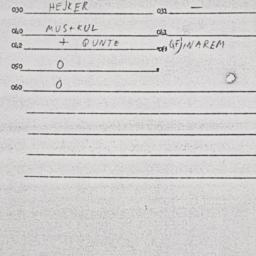 030 HEJKER 031 —
040 MUS+KUL 041
042 + QUNTE 043 (GF)INAREM
050 0
060 0